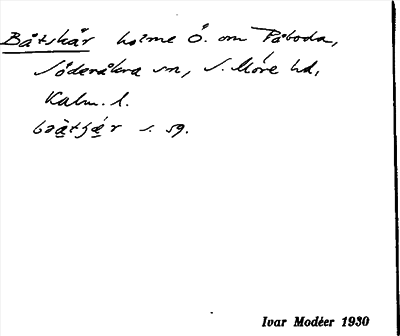 Båtskär holme Ö. om Påboda,
Söderåkra sn, S. Möre hd,
Kalm. l.
s. 59.
Ivar Modéer 1930